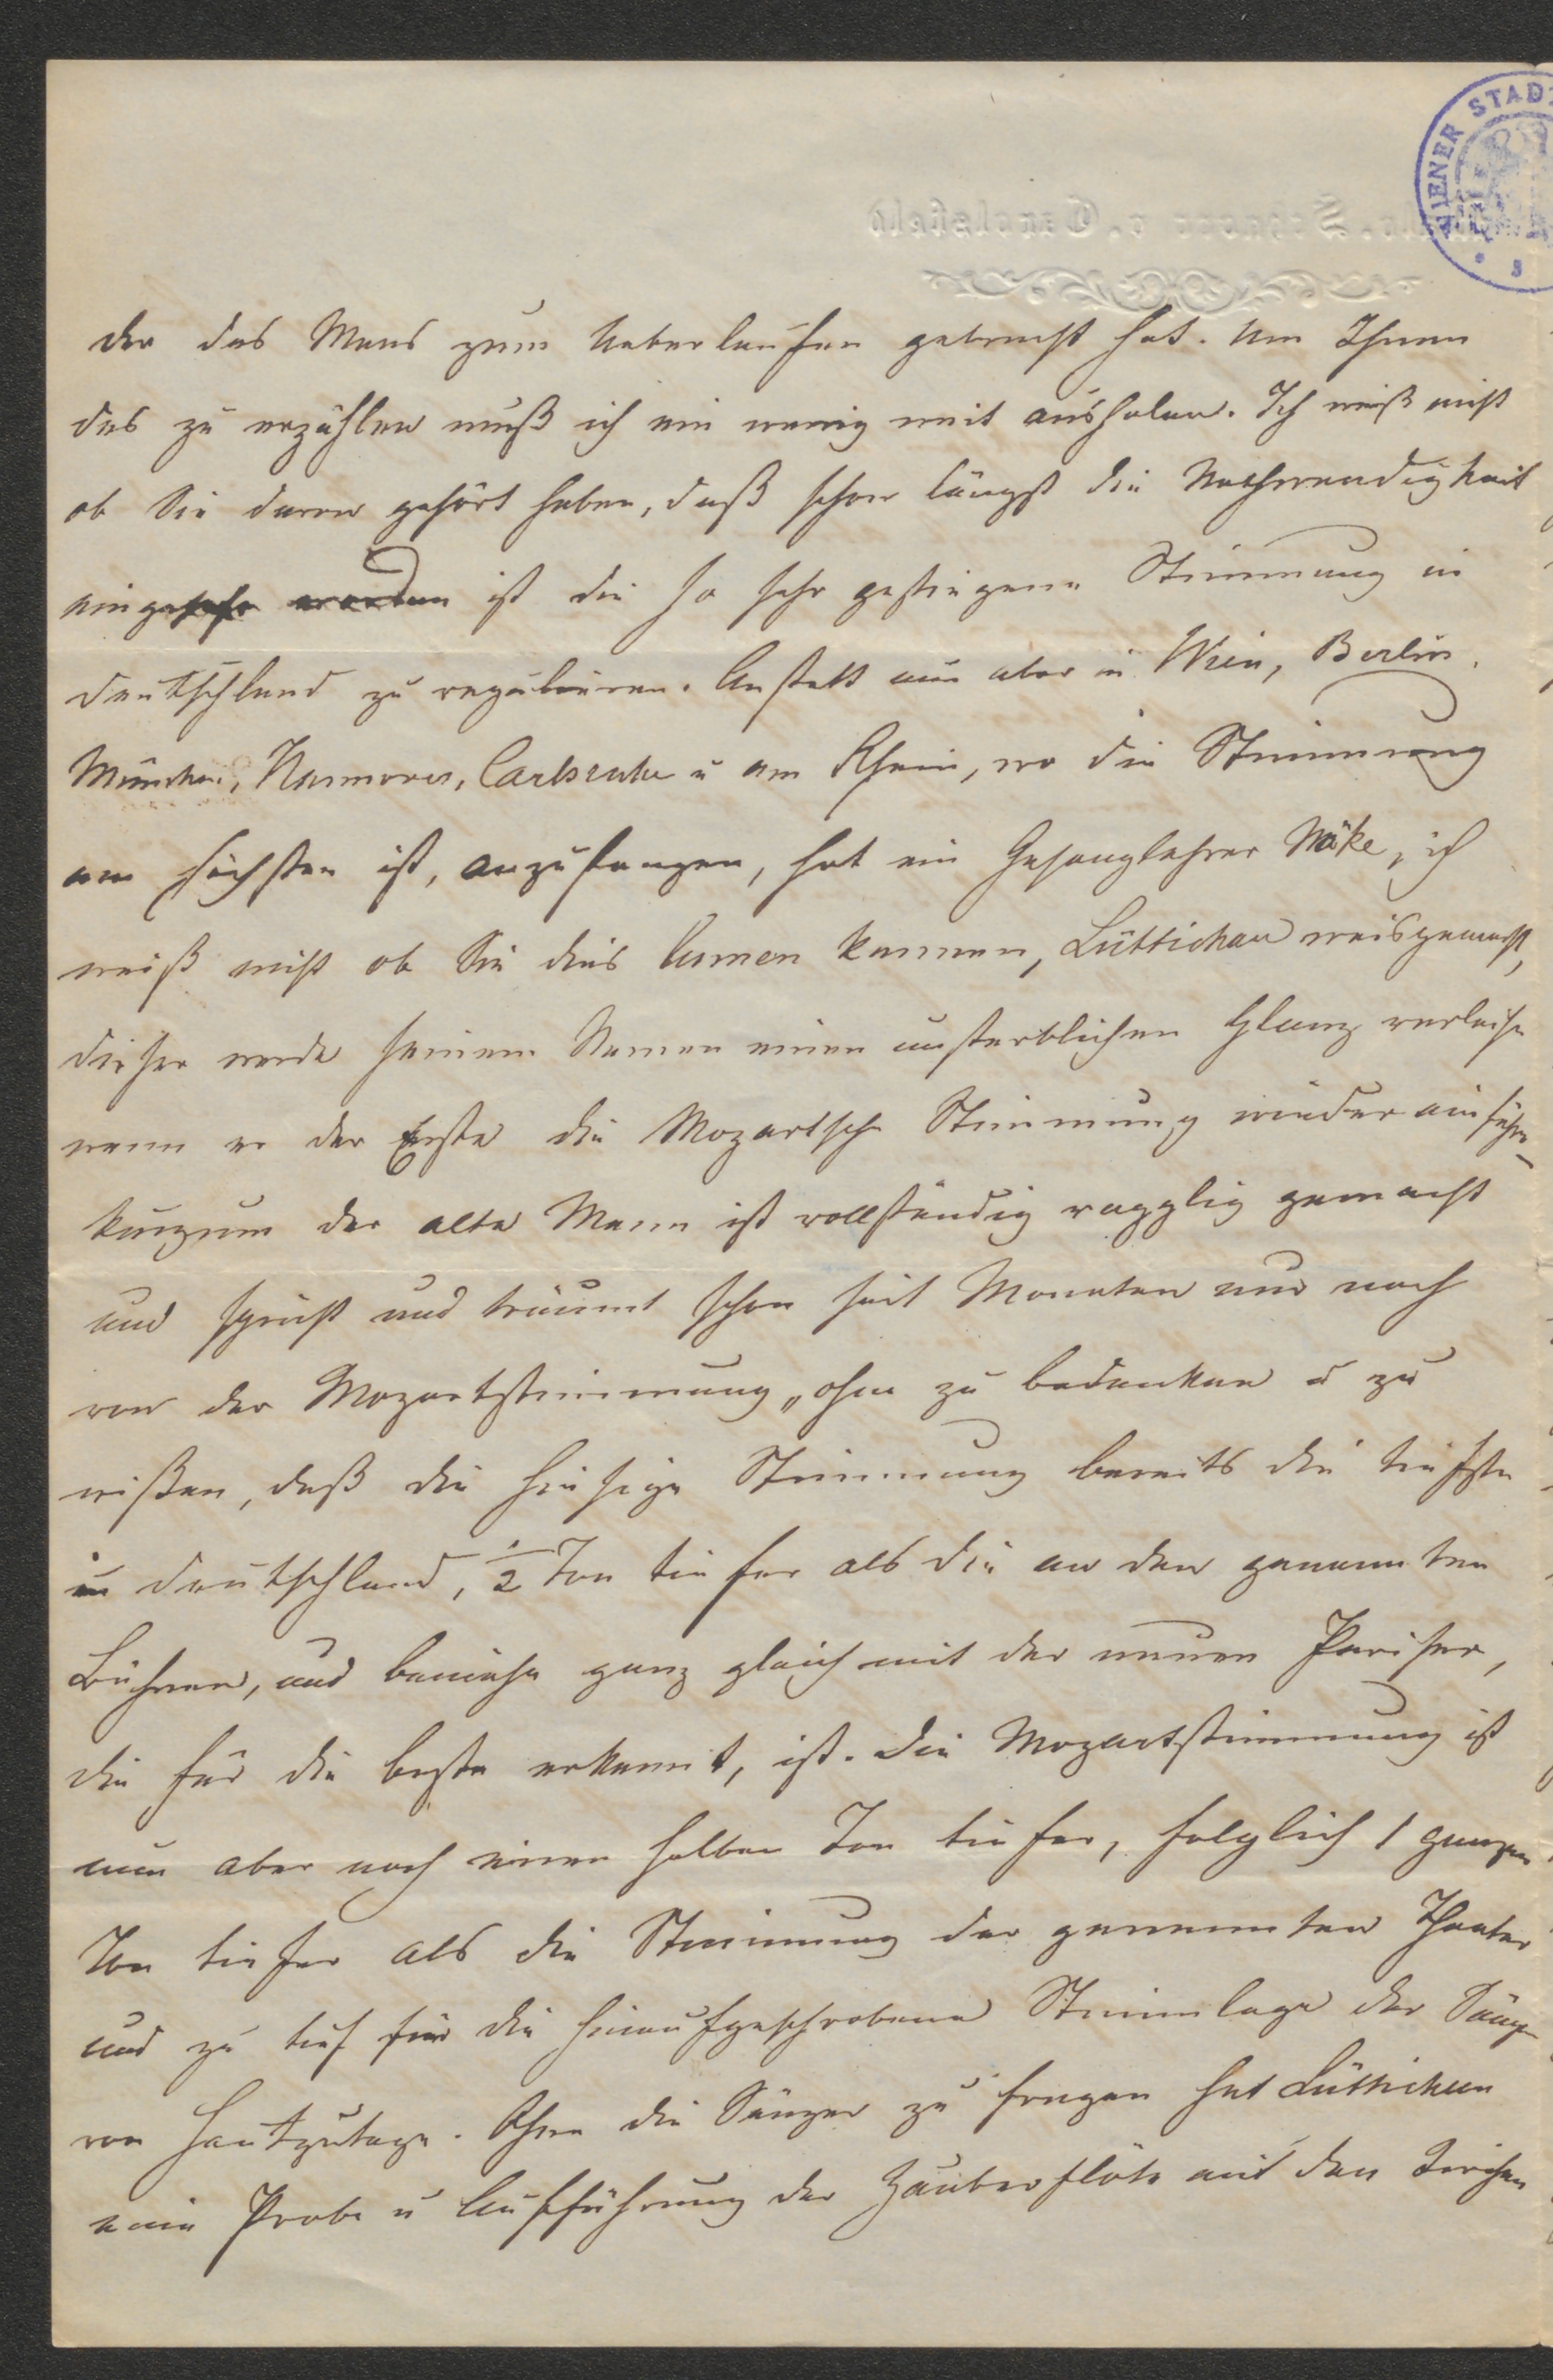 WIENER STADT
der das Maas zum Ueberlaufen gebracht hat. Um Ihnen
das zu erzählen muß ich ein wenig weit ausholen. Ich weiß nicht
ob Sie davon gehört haben, daß schon längst die Nothwendigkeit
worden ist die so sehr gestiegene Stimmung in
Deutschland zu reguliren. Anstatt nun aber in Wien, Berlin,
München, Hannover, Carlsruhe u am Rhein, wo die Stimmung
am höchsten ist, anzufangen, hat ein Gesanglehrer Näke, ich
weiß nicht ob Sie dies lumen kennen, Lüttichau weisgemacht,
dieser werde seinem Namen einen unsterblichen Glanz verleihen
wenn er der Erste die Mozartsche Stimmung wieder einführe
kurzum der alte Mann ist vollständig rapplig gemacht
und spricht und träumt schon seit Monaten nur noch
von der Mozartstimmung, ohne zu bedenken u zu
wißen, daß die hiesige Stimmung bereits die tiefste
in Deutschland, 1/2 Ton tiefer als die an den genannten
Bühnen, und beinahe ganz gleich mit der neuen Pariser,
die für die beste erkannt, ist. Die Mozartstimmung ist
nun aber noch einen halben Ton tiefer, folglich 1 ganzen
Ton tiefer als die Stimmung der genannten Theater
und zu tief für die hinaufgeschrobene Stimmlage der Sänger
von heutzutage. Ohne die Sänger zu fragen hat Lüttichau
eine Probe u Aufführung der Zauberflöte mit den